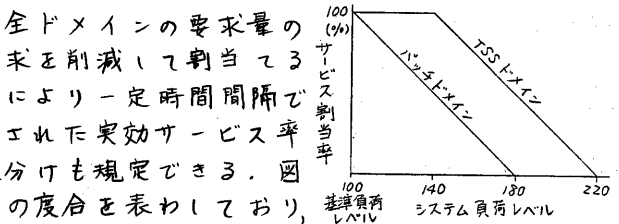 全ドメインの要求量の
求を削減して割当てる
により一定時間間隔で
された実効サービス率
分けも規定できる. 図
の度合を表わしており,
100
(%)
サービス割当率
TSSドメイン
バッチドメイン
100 140 180 220
基準負荷
レベル
システム負荷レベル